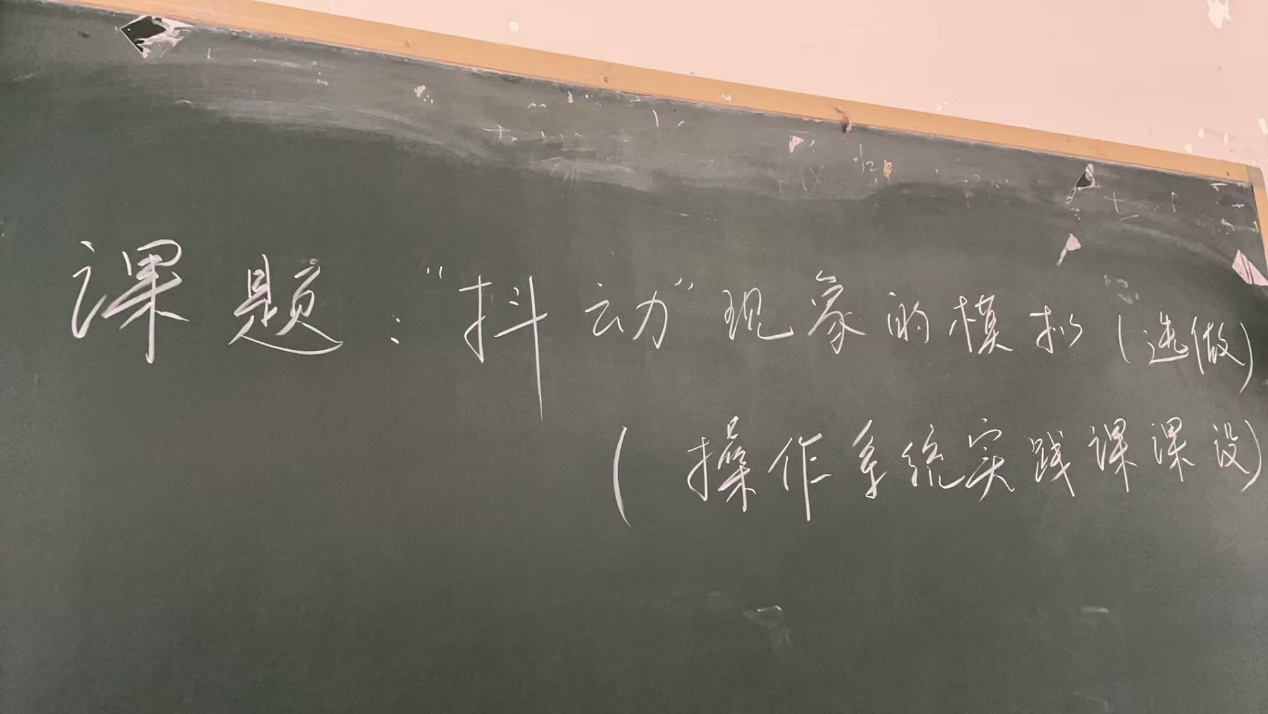 课题：“抖动”现象的模拟（选做）
（操作系统实践课课设）